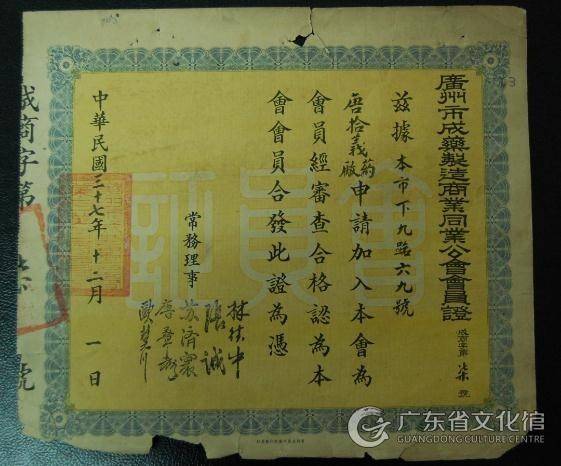 廣州市成藥製造商業同業公會會員證
柒號
茲據本市下九路六九號
唐拾義藥廠申請加入本會為
會員經審查合格認為本
會會員合發此證為憑
常務理事
張誠
中華民國三十七年十二月一日
會員証
成商字第
號
广东省文化馆
GUANGDONG CULTURE CENTRE